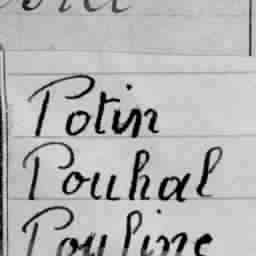 Potin
Pouhal
Pouline